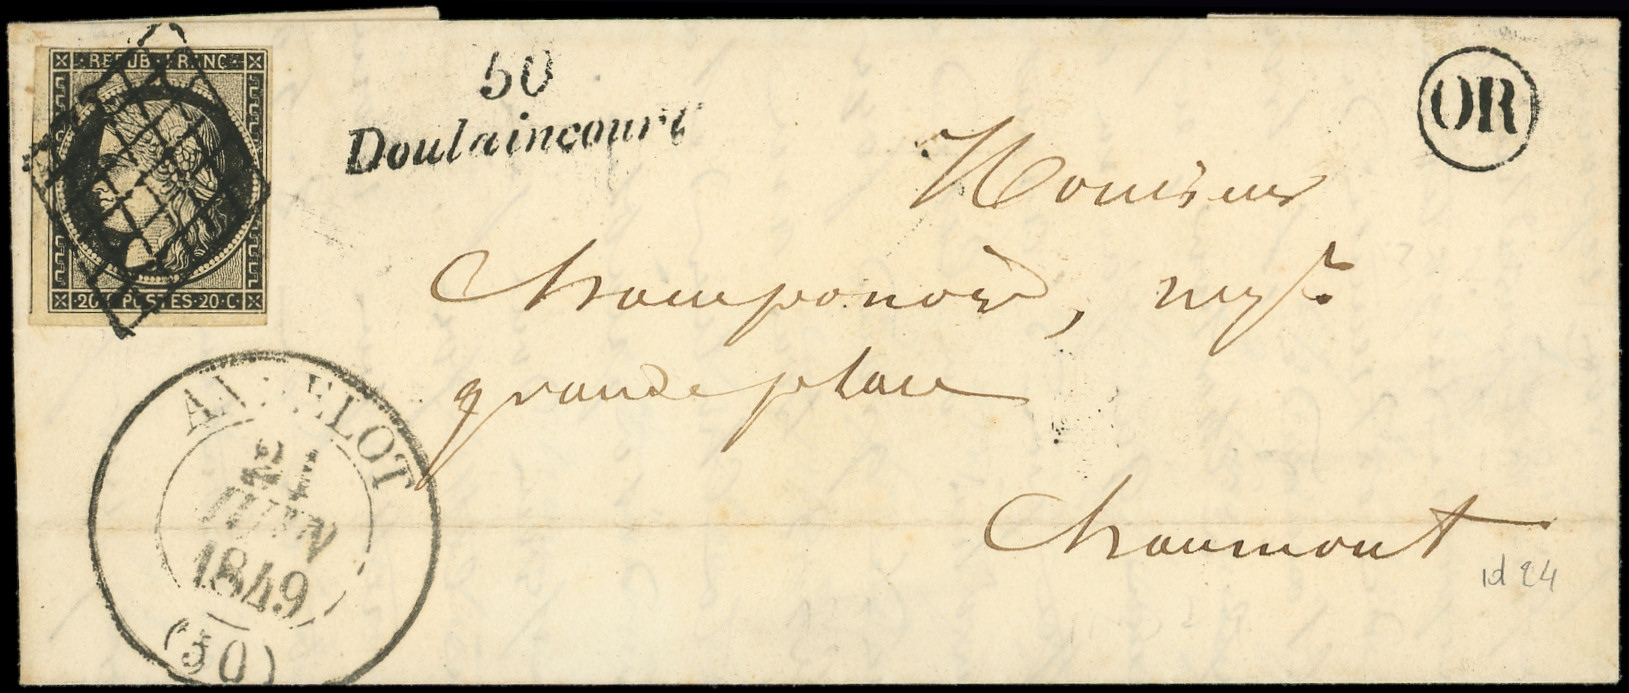 REPUB. FRANC.
20 C POSTES 20 C
50
Doulaincourt
OR
Monsieur
Champonois, ngt
grande place
Chaumont
ANDELOT
21
JUIN
1849
(50)